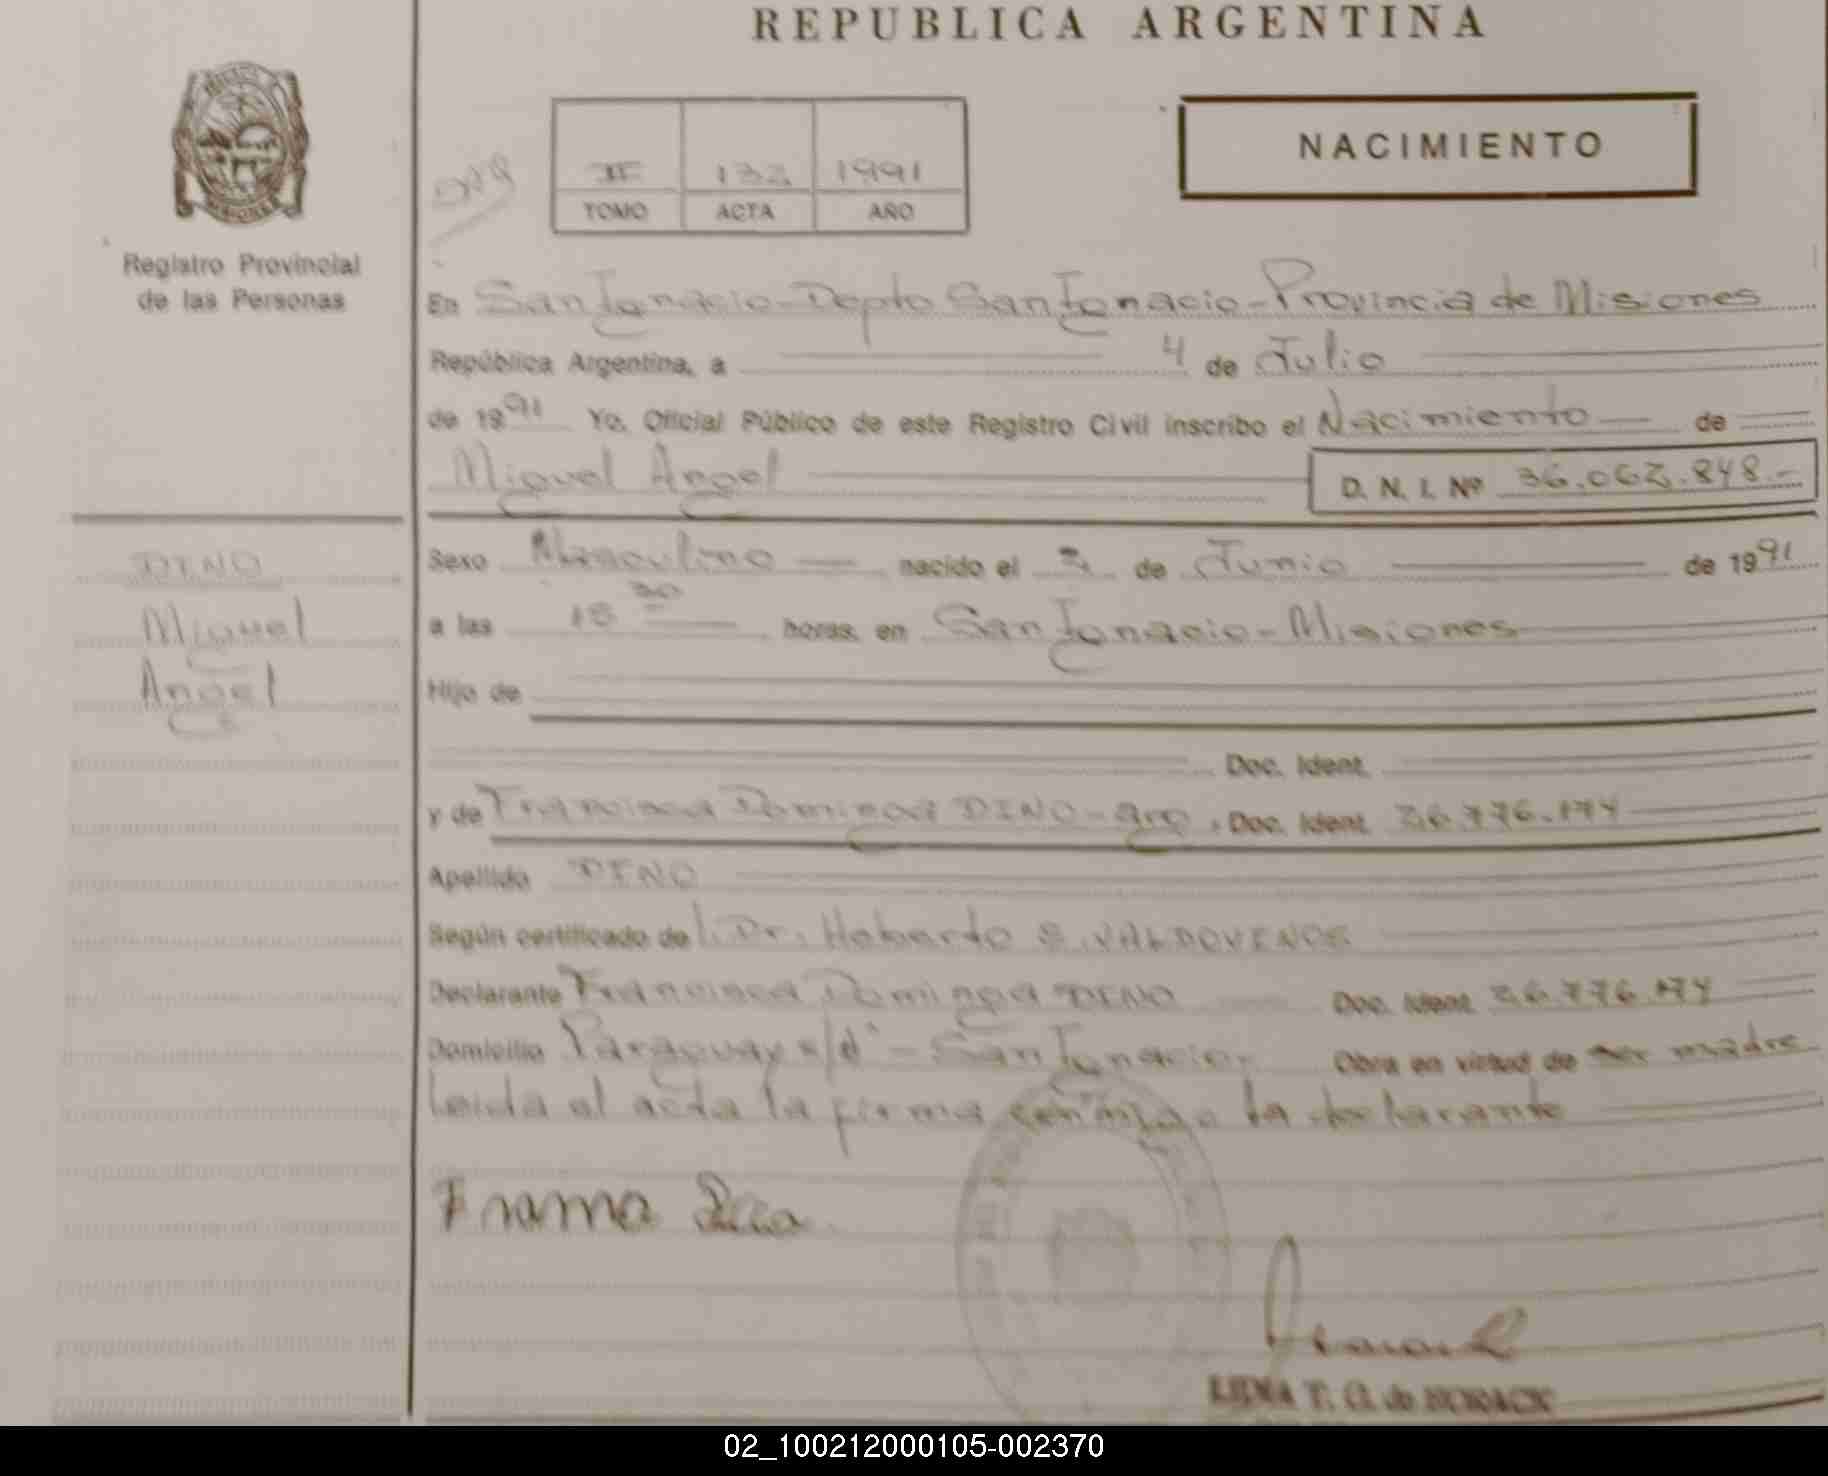 REPUBLICA ARGENTINA
NACIMIENTO
II 132 1991
TOMO ACTA AÑO
MISIONES
Registro Provincial
de las Personas
En San Ignacio - Depto San Ignacio - Provincia de Misiones
República Argentina, a 4 de Julio
de 1991 Yo, Oficial Público de este Registro Civil inscribo el Nacimiento de
Miguel Angel
D. N. I. Nº 36.062.848.-
DINO
Miguel
Angel
Sexo Masculino nacido el de Junio de 1991
a las 18 30 horas, en San Ignacio - Misiones
Hijo de
Doc. Ident.
y de Francisca Dominga DINO - arg. Doc. Ident. 26.776.174
Apellido DINO
Según certificado del Dr. Hoberto VALDOVINOS
Declarante Francisca Dominga DINO Doc. Ident. 26.776.174
Domicilio Paraguay s/d - San Ignacio. Obra en virtud de ser madre
Leida el acta la firma conmigo la declarante
LIDIA T. G. de HORACK
02_100212000105-002370